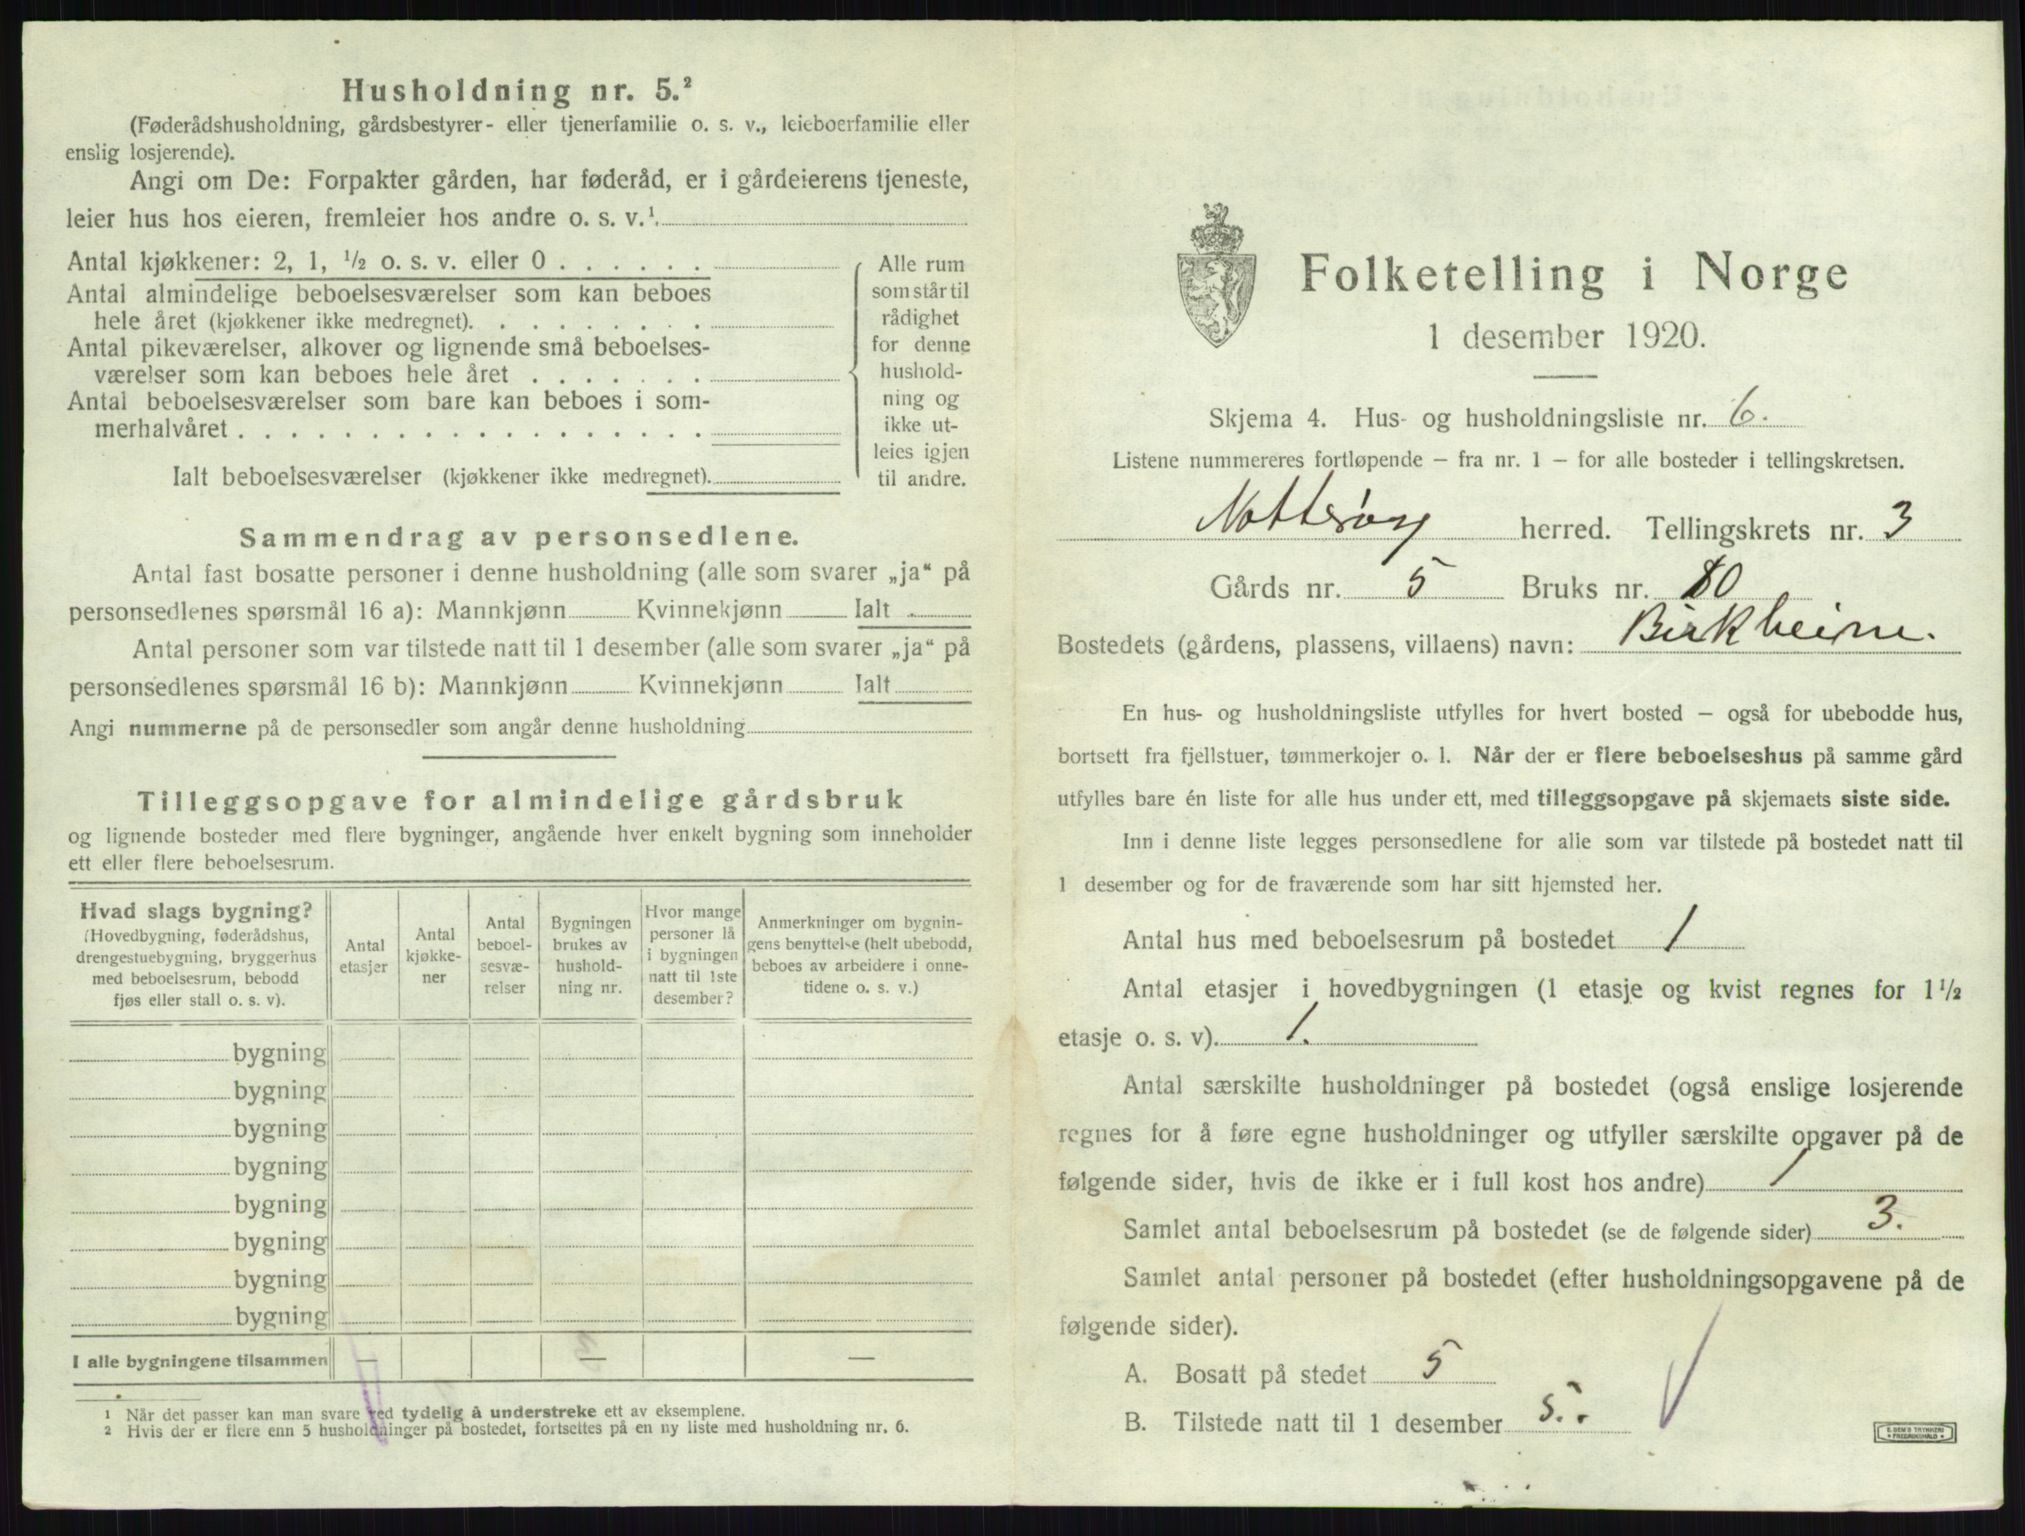 Husholdning nr. 5.²
(Føderådshusholdning, gårdsbestyrer- eller tjenerfamilie o. s. v., leieboerfamilie eller
enslig losjerende).
Angi om De: Forpakter gården, har føderåd, er i gårdeierens tjeneste,
leier hus hos eieren, fremleier hos andre o. s. v.¹
Antal kjøkkener: 2, 1, ½ o. s. v. eller 0
Antal almindelige beboelsesværelser som kan beboes
hele året (kjøkkener ikke medregnet).
Antal pikeværelser, alkover og lignende små beboelses-
værelser som kan beboes hele året
Antal beboelsesværelser som bare kan beboes i som-
merhalvåret
Ialt beboelsesværelser (kjøkkener ikke medregnet).
Alle rum
som står til
rådighet
for denne
hushold-
ning og
ikke ut-
leies igjen
til andre.
Sammendrag av personsedlene.
Antal fast bosatte personer i denne husholdning (alle som svarer „ja“ på
personsedlenes spørsmål 16 a): Mannkjønn Kvinnekjønn Ialt
Antal personer som var tilstede natt til 1 desember (alle som svarer „ja“ på
personsedlenes spørsmål 16 b): Mannkjønn Kvinnekjønn Ialt
Angi nummerne på de personsedler som angår denne husholdning
Tilleggsopgave for almindelige gårdsbruk
og lignende bosteder med flere bygninger, angående hver enkelt bygning som inneholder
ett eller flere beboelsesrum.
Hvad slags bygning?
(Hovedbygning, føderådshus,
drengestuebygning, bryggerhus
med beboelsesrum, bebodd
fjøs eller stall o. s. v).
Antal
etasjer
Antal
kjøkke-
ner
Antal
beboel-
sesvæ-
relser
Bygningen
brukes av
hushold-
ning nr.
Hvor mange
personer lå
i bygningen
natt til 1ste
desember?
Anmerkninger om bygnin-
gens benyttelse (helt ubebodd,
beboes av arbeidere i onne-
tidene o. s. v.)
bygning
bygning
bygning
bygning
bygning
bygning
bygning
bygning
I alle bygningene tilsammen — — —
1 Når det passer kan man svare ved tydelig å understreke ett av eksemplene.
2 Hvis der er flere enn 5 husholdninger på bostedet, fortsettes på en ny liste med husholdning nr. 6.
Folketelling i Norge
1 desember 1920.
Skjema 4. Hus- og husholdningsliste nr. 6.
Listene nummereres fortløpende – fra nr. 1 – for alle bosteder i tellingskretsen.
Nøtterøy herred. Tellingskrets nr. 3
Gårds nr. 5 Bruks nr. 80
Bostedets (gårdens, plassens, villaens) navn: Birkheim.
En hus- og husholdningsliste utfylles for hvert bosted – også for ubebodde hus,
bortsett fra fjellstuer, tømmerkojer o. l. Når der er flere beboelseshus på samme gård
utfylles bare én liste for alle hus under ett, med tilleggsopgave på skjemaets siste side.
Inn i denne liste legges personsedlene for alle som var tilstede på bostedet natt til
1 desember og for de fraværende som har sitt hjemsted her.
Antal hus med beboelsesrum på bostedet 1
Antal etasjer i hovedbygningen (1 etasje og kvist regnes for 1½
etasje o. s. v). 1.
Antal særskilte husholdninger på bostedet (også enslige losjerende
regnes for å føre egne husholdninger og utfyller særskilte opgaver på de
følgende sider, hvis de ikke er i full kost hos andre) 1
Samlet antal beboelsesrum på bostedet (se de følgende sider) 3.
Samlet antal personer på bostedet (efter husholdningsopgavene på de
følgende sider).
A. Bosatt på stedet 5
B. Tilstede natt til 1 desember 5.
E. SEM'S TRYKKERI
FREDRIKSHALD